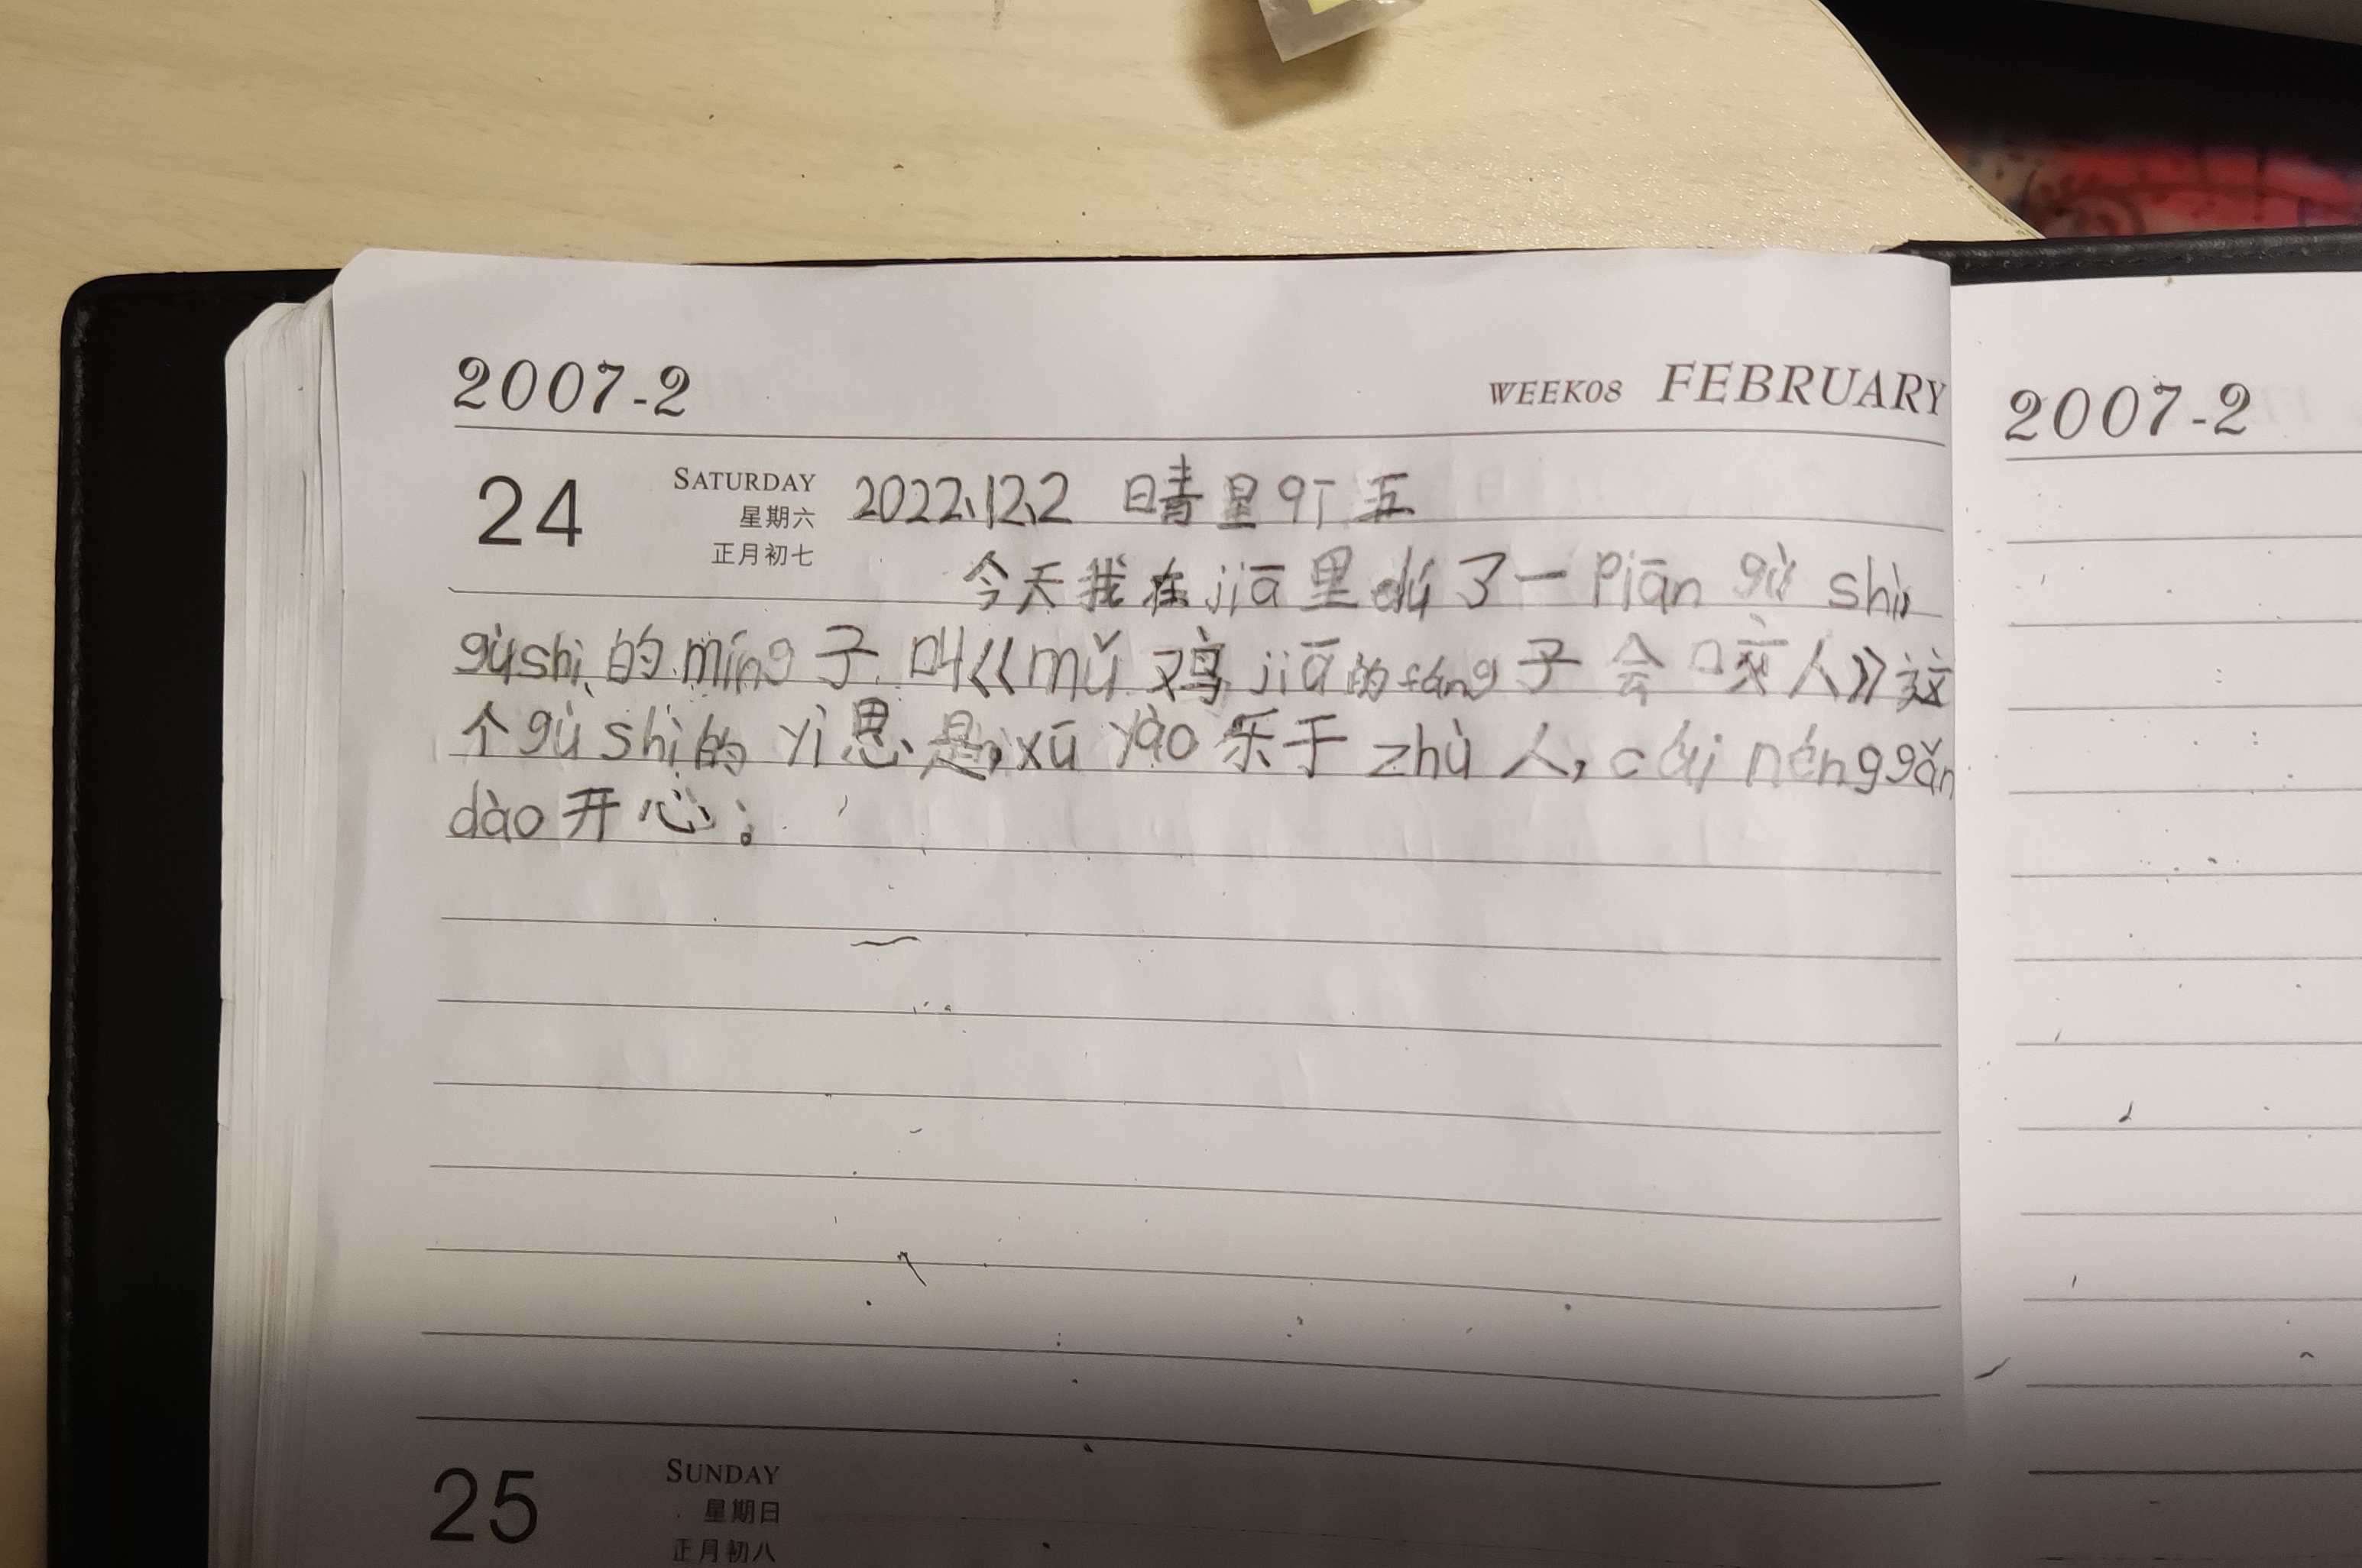 2007-2 WEEK08 FEBRUARY
24 SATURDAY 2022.12.2 晴 星qī 五
星期六
正月初七
今天我在jiā里dú了一Piān gù shì,
gùshì的míng子叫《mǔ鸡jiā的fáng子会咬人》这
个gù shì的yì思是,xū yào乐于zhù人,cái nénggǎn
dào开心。
25 SUNDAY
星期日
正月初八
2007-2